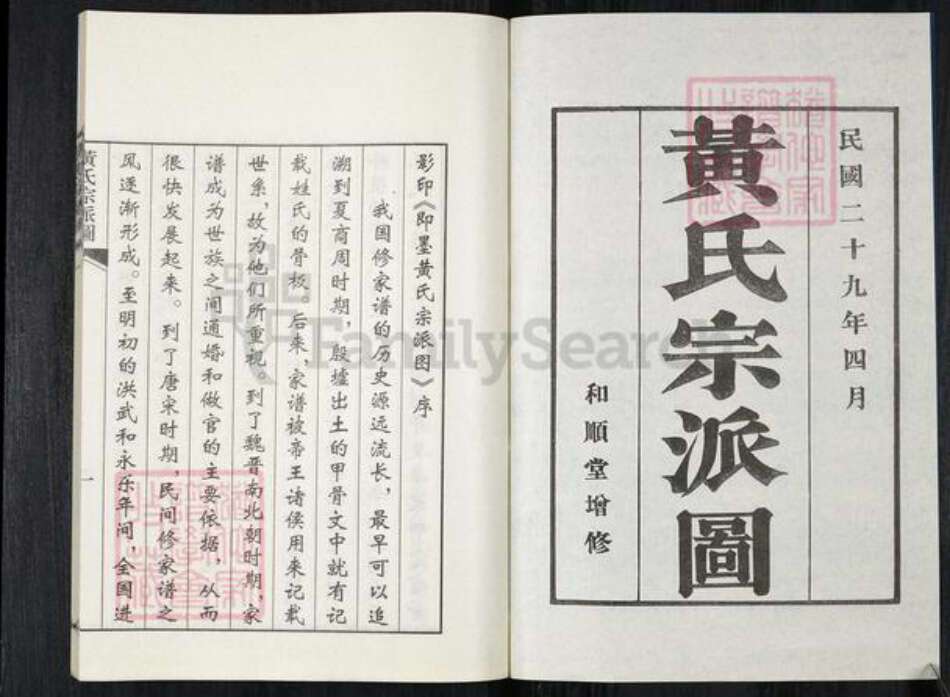 民國二十九年四月
黃氏宗派圖
和順堂增修
影印《即墨黄氏宗派图》序
我国修家谱的历史源远流长，最早可以追
溯到夏商周时期，殷墟出土的甲骨文中就有记
载姓氏的骨板。后来，家谱被帝王诸侯用来记载
世系，故为他们所重视。到了魏晋南北朝时期，家
谱成为世族之间通婚和做官的主要依据，从而
很快发展起来。到了唐宋时期，民间修家谱之
风逐渐形成。至明初的洪武和永乐年间，全国进
黃氏宗派圖
一
FamilySearch